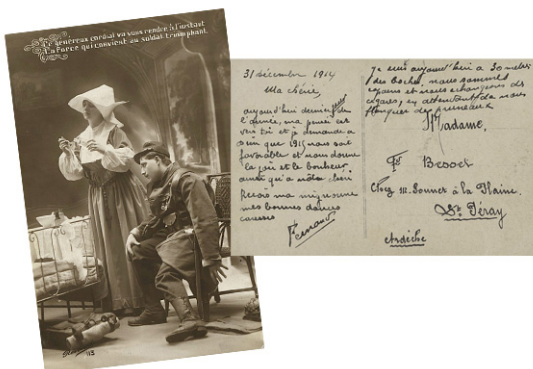 Ce généreux cordial va vous rendre à l'instant
La Force qui convient au soldat triomphant.
113
31 décembre 1914
Ma chérie,
aujourd'hui dernier jour de
l'année, ma pensée est
vers toi et je demande a
que 1915 nous soit
favorable et nous donne
la joie et le bonheur
ainsi qu'à notre
Reçois ma mignonne
mes bonnes douces
caresses
Fernand
Je suis aujourd'hui a 30 metres
des boches, nous sommes
et nous échangeons des
cigares, en attendant de nous
flanquer des pruneaux
Madame,
Fd Bessoet
Chez M. Sonnet à la Plaine
St Péray
Ardèche